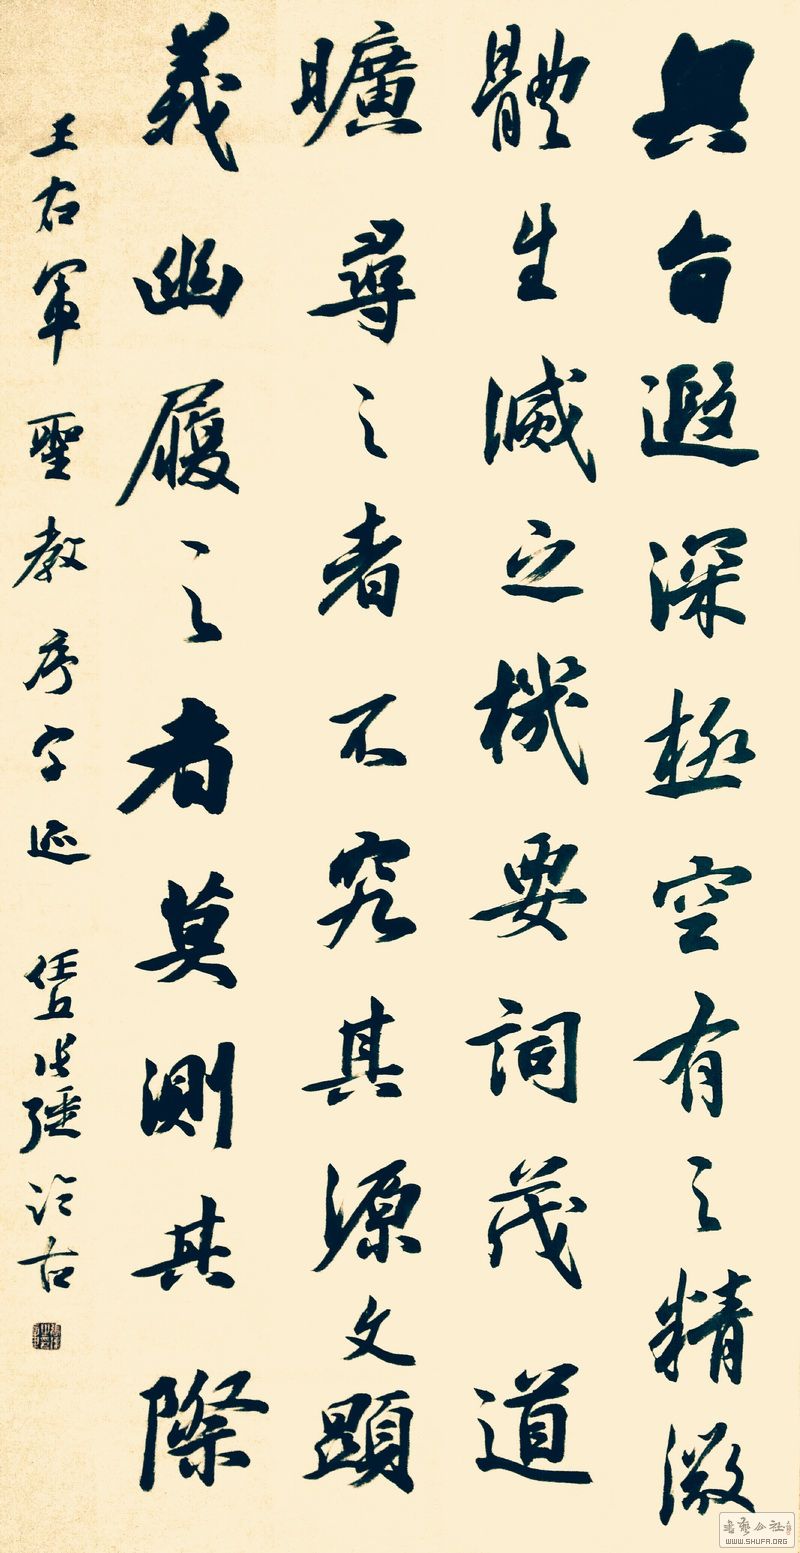 奧旨遐深極空有之精微
體生滅之機要詞茂道
曠尋之者不究其源文顯
義幽履之者莫測其際
王右軍聖教序字迹 任丘張臨古
書藝公社
WWW.SHUFA.ORG